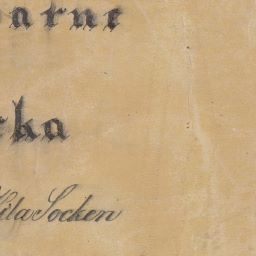 arne
rka
Kila Socken